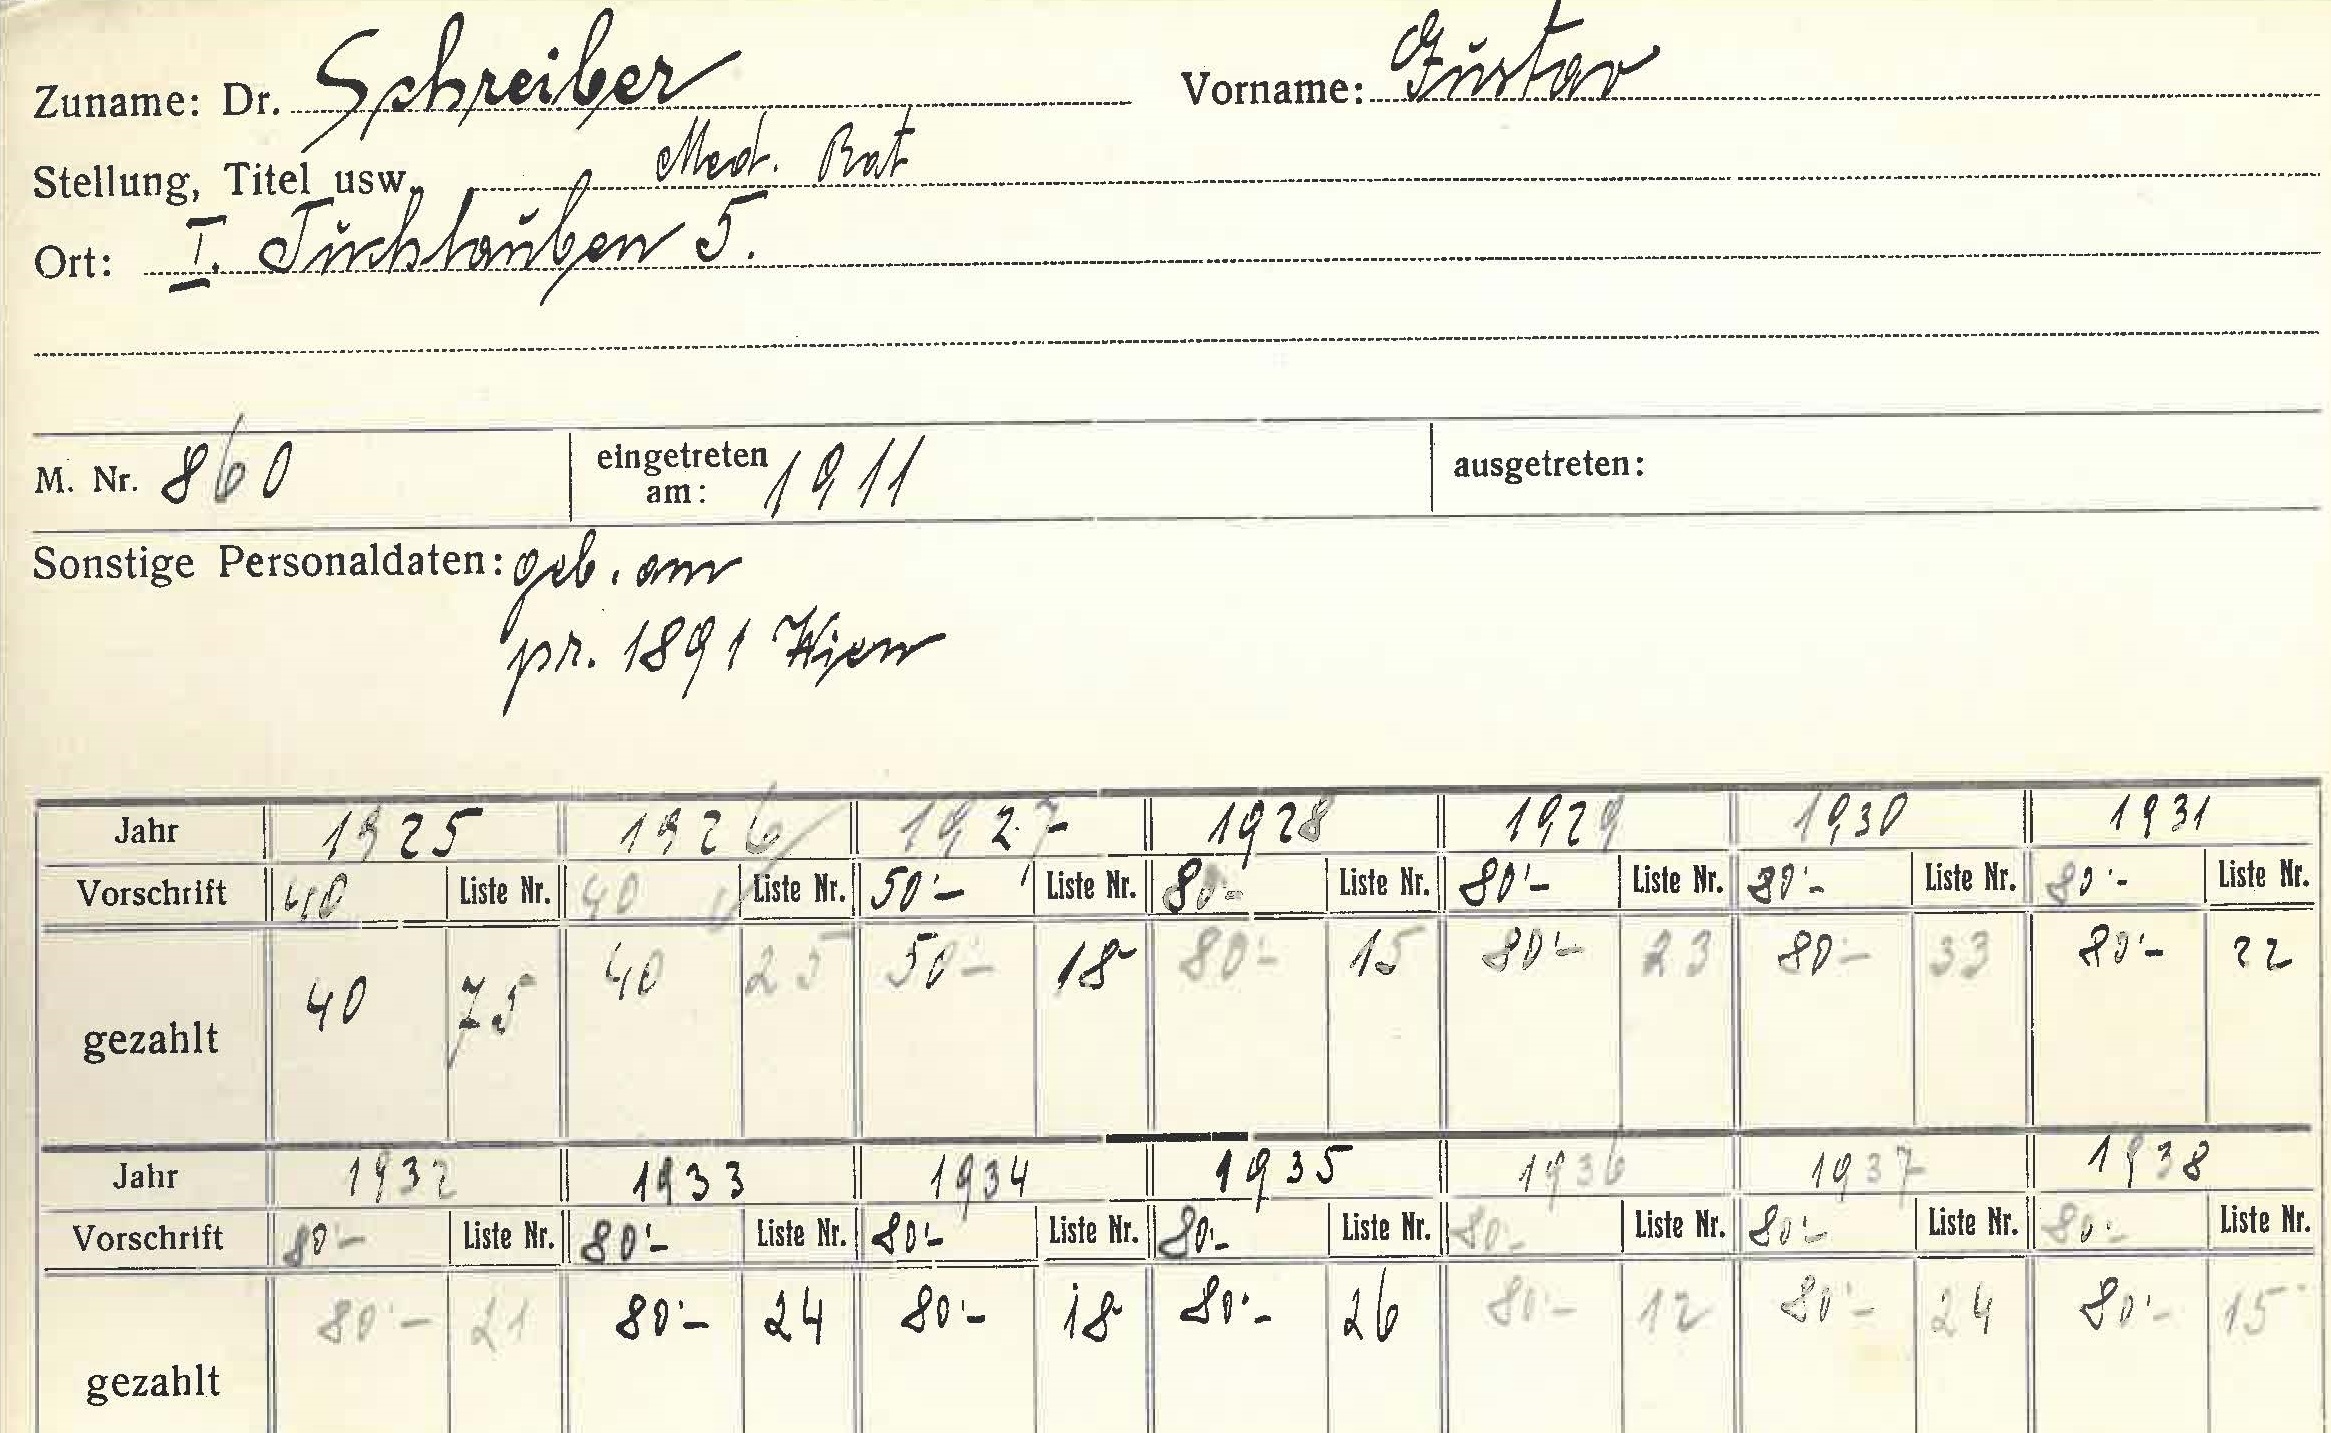 Zuname: Dr. Schreiber Vorname: Gustav
Stellung, Titel usw. Med. Rat
Ort: I. Tuchlauben 5.
M. Nr. 860 eingetreten am: 1911 ausgetreten:
Sonstige Personaldaten: geb. am
pr. 1891 Wien
Jahr 1925 1926 1927 1928 1929 1930 1931
Vorschrift 40 Liste Nr. 40 Liste Nr. 50'- Liste Nr. 80'- Liste Nr. 80'- Liste Nr. 80'- Liste Nr. 80'- Liste Nr.
gezahlt 40 75 40 25 50'- 18 80'- 15 80'- 23 80'- 33 80'- 22
Jahr 1932 1933 1934 1935 1936 1937 1938
Vorschrift 80'- Liste Nr. 80'- Liste Nr. 80'- Liste Nr. 80'- Liste Nr. 80'- Liste Nr. 80'- Liste Nr. 80'- Liste Nr.
gezahlt 80'- 21 80'- 24 80'- 18 80'- 26 80'- 12 80'- 24 80'- 15